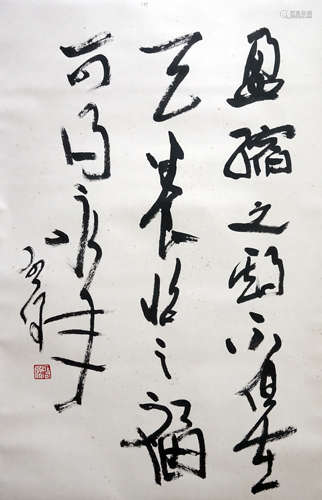 盈缩之期不但在
天养怡之福
可得永年